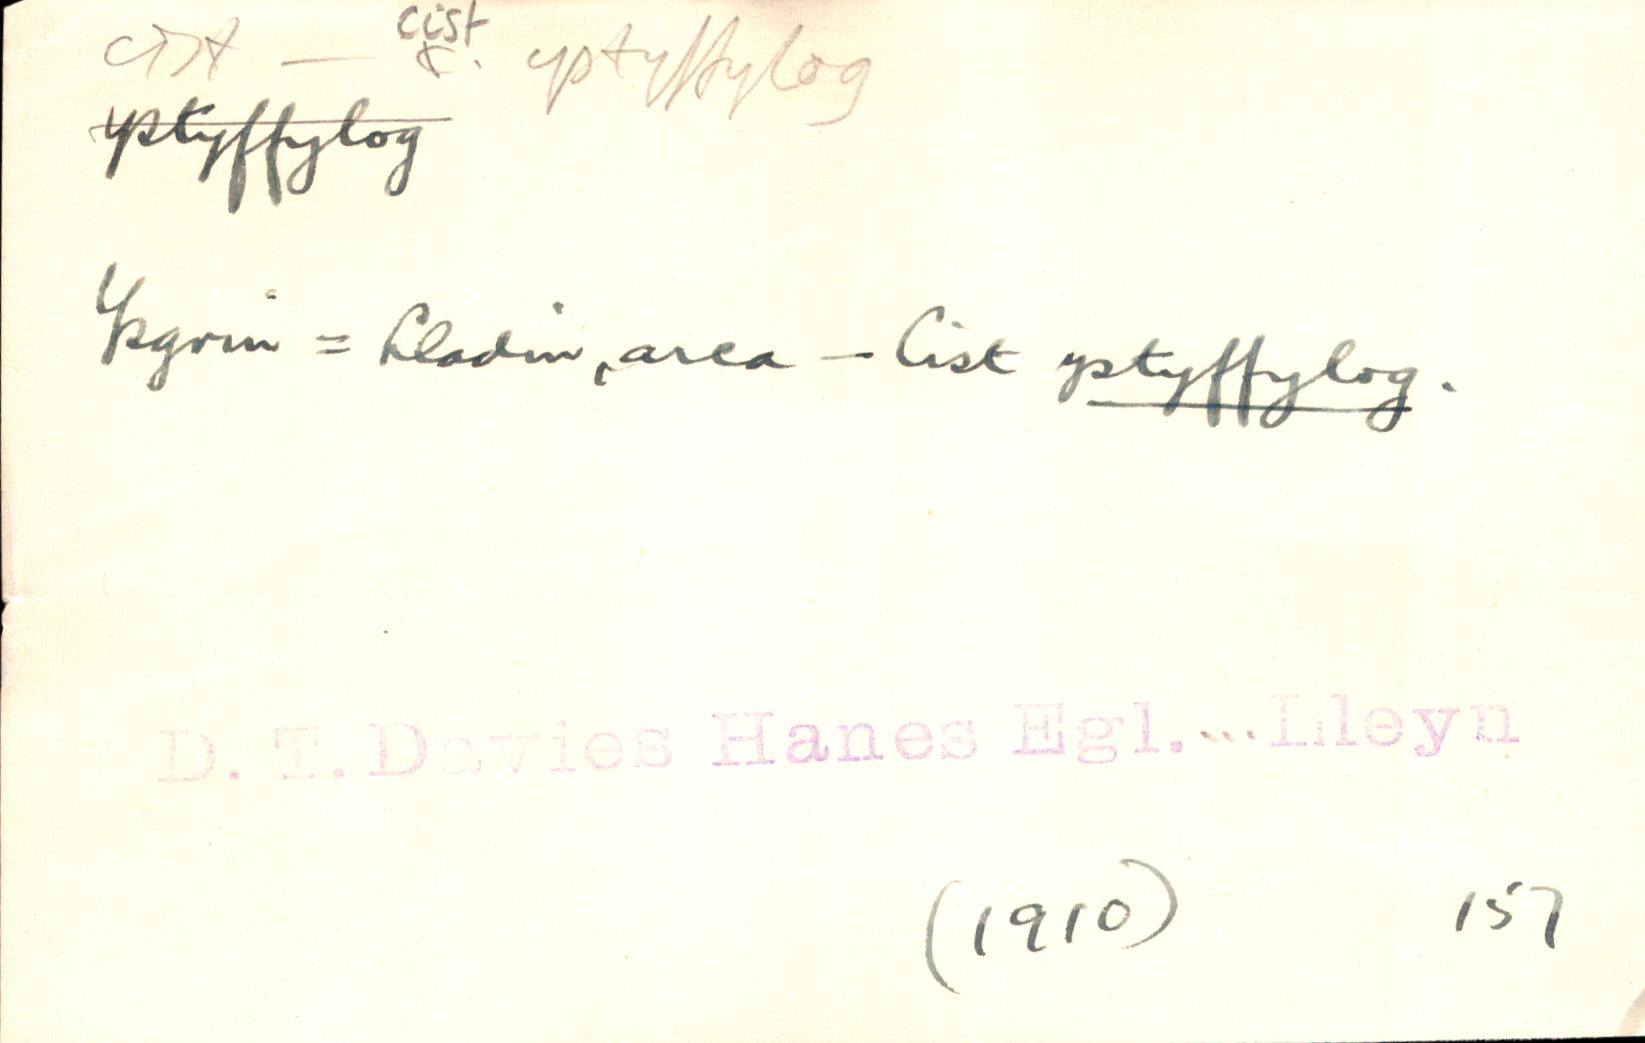 cist — cist c. ystyffylog
ystyffylog
Ysgrin = Lladin, arca – Cist ystyffylog.
D. T. Davies Hanes Egl.... Lleyn
(1910) 157